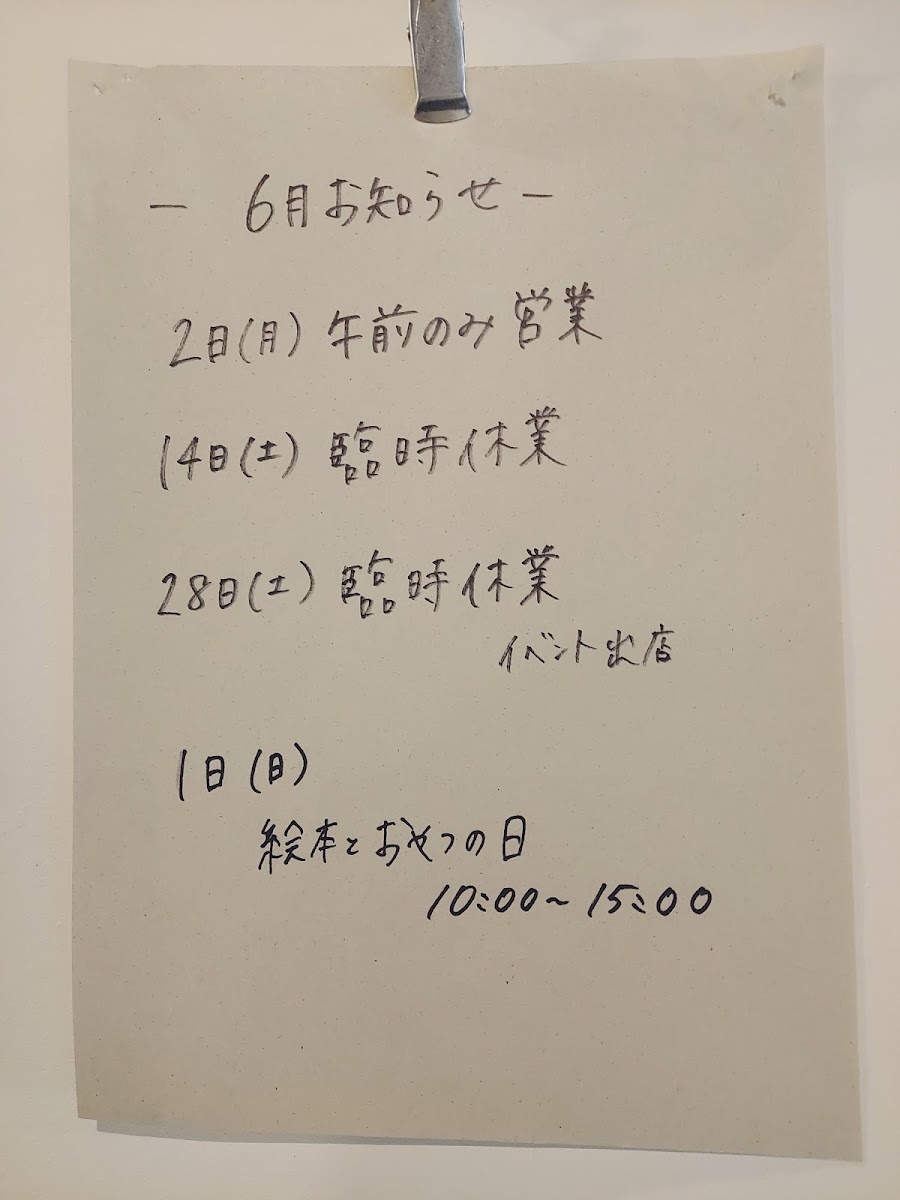 — 6月お知らせ —
2日(月) 午前のみ営業
14日(土) 臨時休業
28日(土) 臨時休業
イベント出店
1日(日)
絵本とおやつの日
10:00~15:00